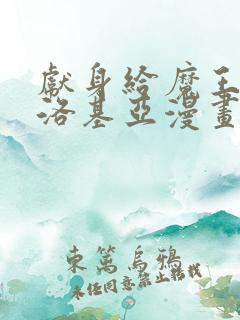 獻身給魔王
洛基亞漫畫
東篱烏鴉
未经同意禁止转载